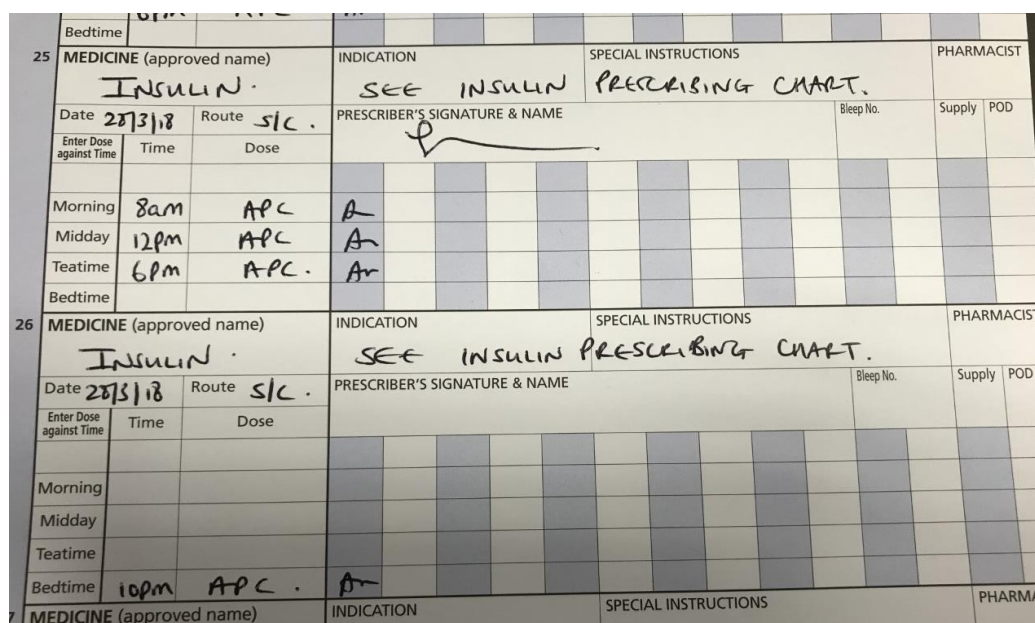 Bedtime
25 MEDICINE (approved name) INDICATION SPECIAL INSTRUCTIONS PHARMACIST
INSULIN. SEE INSULIN PRESCRIBING CHART.
Date 28/3/18 Route S/C. PRESCRIBER'S SIGNATURE & NAME Bleep No. Supply POD
Enter Dose against Time Time Dose
Morning 8am APC
Midday 12pm APC
Teatime 6pm APC.
Bedtime
26 MEDICINE (approved name) INDICATION SPECIAL INSTRUCTIONS PHARMACIS
INSULIN. SEE INSULIN PRESCRIBING CHART.
Date 28/3/18 Route S/C. PRESCRIBER'S SIGNATURE & NAME Bleep No. Supply POD
Enter Dose against Time Time Dose
Morning
Midday
Teatime
Bedtime 10pm APC.
7 MEDICINE (approved name) INDICATION SPECIAL INSTRUCTIONS PHARMA